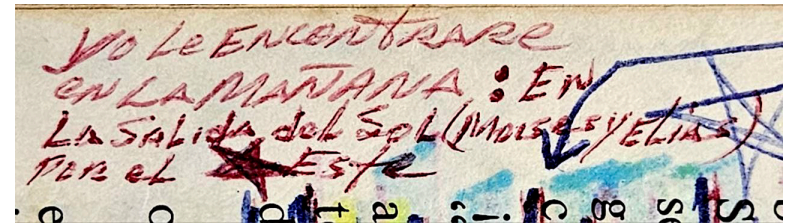 YO LE ENCONTRARE
EN LA MAÑANA : EN
LA SALIDA del SOL (MOISES Y ELIAS)
POR el ESTE